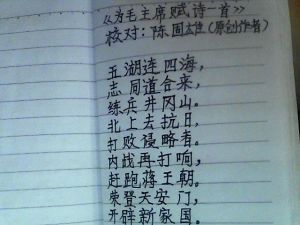 《为毛主席赋诗一首》
校对：陈国雄（原创作者）
五湖连四海，
志同道合来，
练兵井冈山。
北上去抗日，
打败侵略者。
内战再打响，
赶跑蒋王朝。
荣登天安门，
开辟新家国。